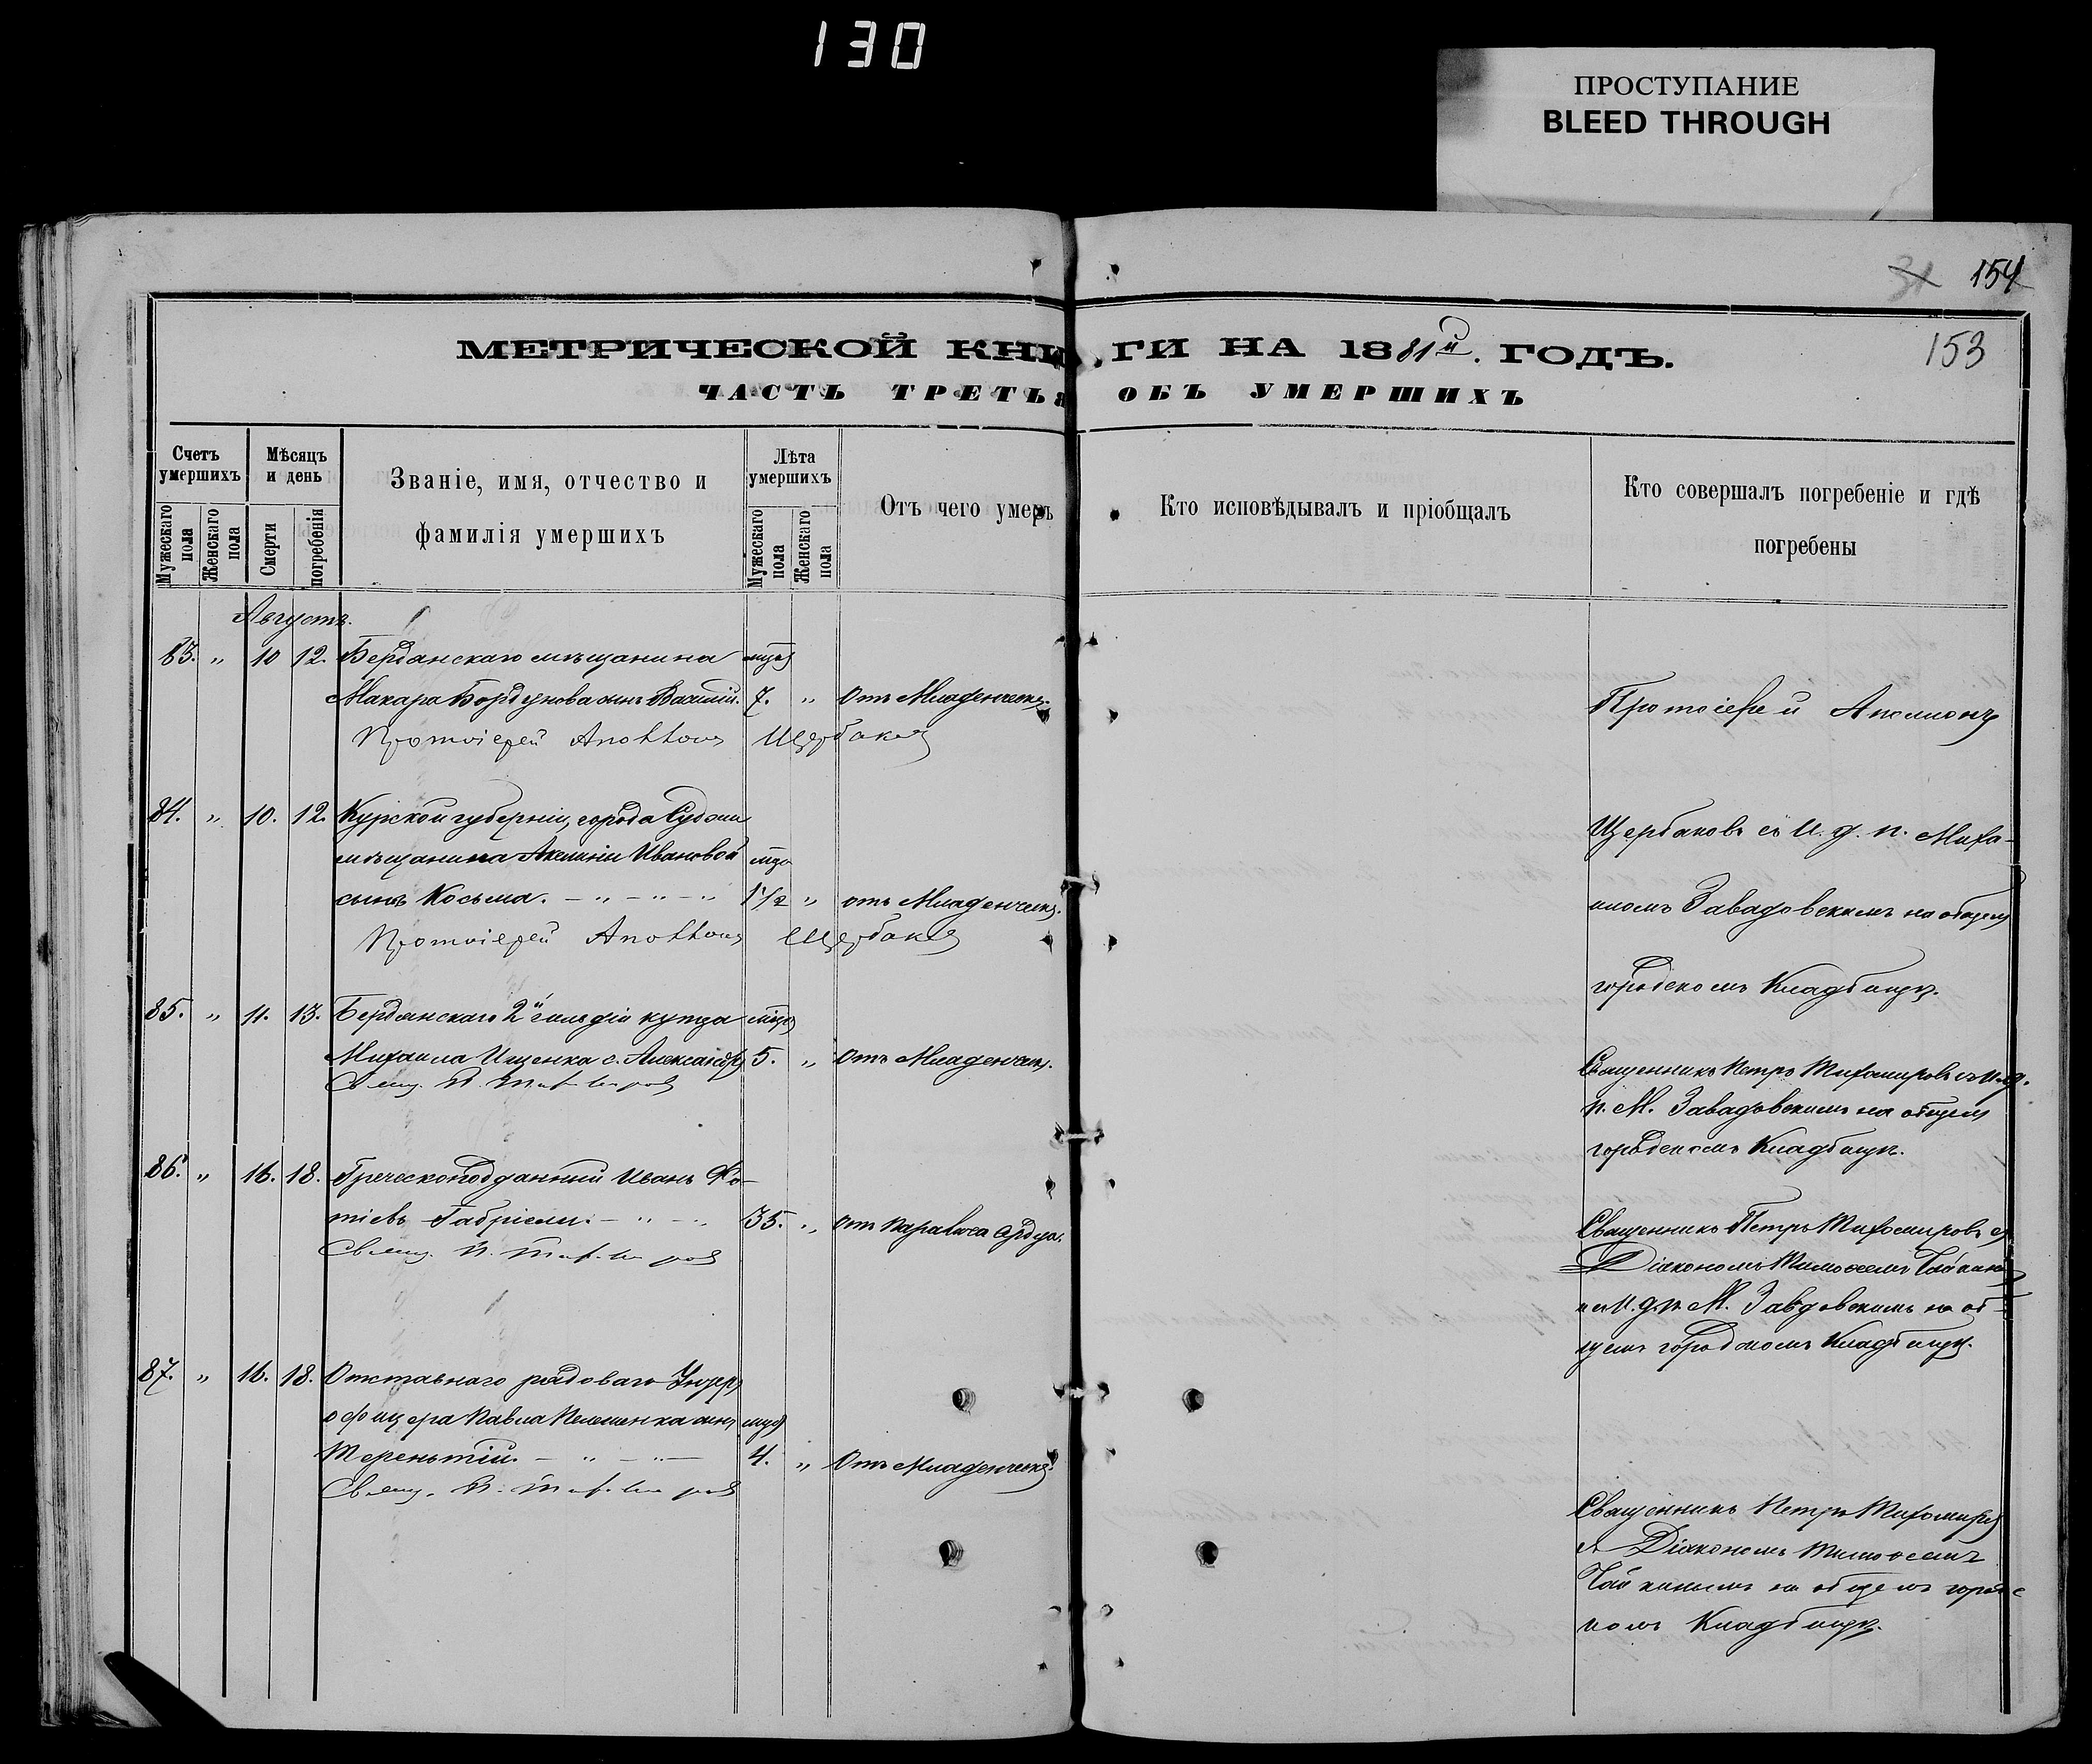 130
ПРОСТУПАНИЕ
BLEED THROUGH
31 154
МЕТРИЧЕСКОЙ КНИГИ НА 1881й. ГОДЪ.
153
ЧАСТЬ ТРЕТЬЯ ОБЪ УМЕРШИХЪ
Счетъ умершихъ
Мужескаго пола
Женскаго пола
Мѣсяцъ и день
Смерти
погребенія
Званіе, имя, отчество и
фамилія умершихъ
Лѣта умершихъ
Мужескаго пола
Женскаго пола
Отъ чего умеръ
Кто исповѣдывалъ и пріобщалъ
Кто совершалъ погребеніе и гдѣ
погребены
Августъ.
83. " 10 12. Бердянскаго мѣщанина
Макара Бордунова сынъ Василій. 7. " Отъ Младенческ.
Протоіерей Аполлонъ Щербаковъ
Протоіерей Аполлонъ
84. " 10. 12. Курской губерніи, города Суджи
мѣщанина Акилины Ивановой
сынъ Косьма. – " – " – " 1 1/2 " отъ Младенческ.
Протоіерей Аполлонъ Щербаковъ
Щербаковъ съ И. д. п. Миха-
иломъ Завадовскимъ на общемъ
городскомъ Кладбищѣ.
85. " 11. 13. Бердянскаго 2й гильдіи купца
Михаила Ищенка с. Александръ 5. " Отъ Младенческ.
Свящ. П. Тихомировъ
Священникъ Петръ Тихомировъ съ И.д.
п. М. Завадовскимъ на общемъ
городскомъ Кладбищѣ.
86. " 16. 18. Греческоподданный Иванъ Фо-
тіевъ Габріели. – " – " 35. " Отъ паралича сердца.
Свящ. П. Тихомировъ
Священникъ Петръ Тихомировъ съ
Діакономъ Тимоѳеемъ Чайкинымъ
и И. д. п. М. Завадовскимъ на об-
щемъ городскомъ Кладбищѣ.
87. " 16. 18. Отставнаго рядоваго Унтеръ
офицера Павла Пелешенка сынъ
Терентій. – " – " – 4. " Отъ Младенческ.
Свящ. П. Тихомировъ
Священникъ Петръ Тихомировъ
съ Діакономъ Тимоѳеемъ
Чайкинымъ на общемъ городс
комъ Кладбищѣ.